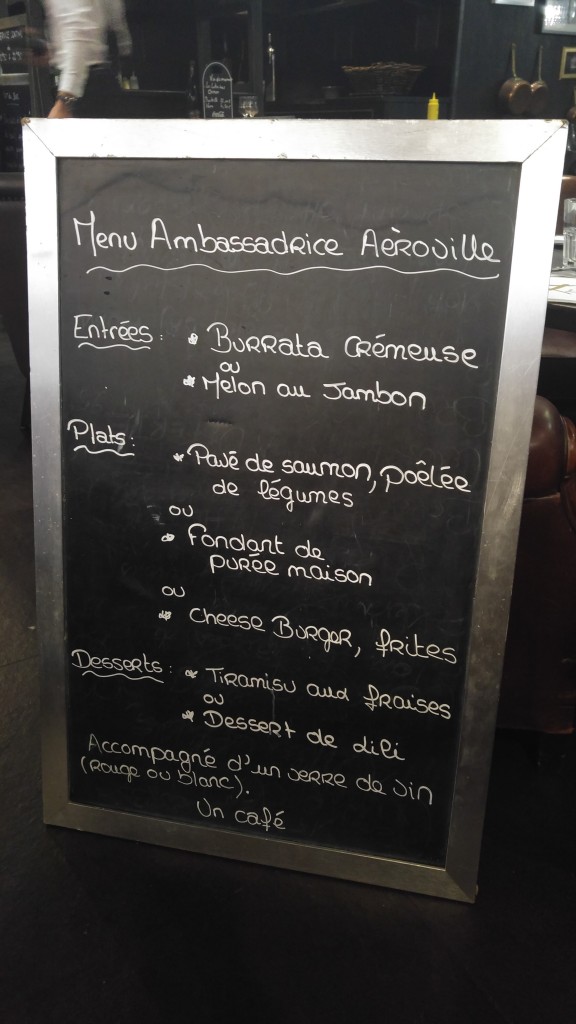 Menu Ambassadrice Aèroville
Entrées : * Burrata crémeuse
ou
* Melon au Jambon
Plats : * Pavé de saumon, poêlée
de légumes
ou
* Fondant de
purée maison
ou
* Cheese Burger, frites
Desserts : * Tiramisu aux fraises
ou
* Dessert de dili
Accompagné d'un verre de vin
(Rouge ou blanc).
Un café